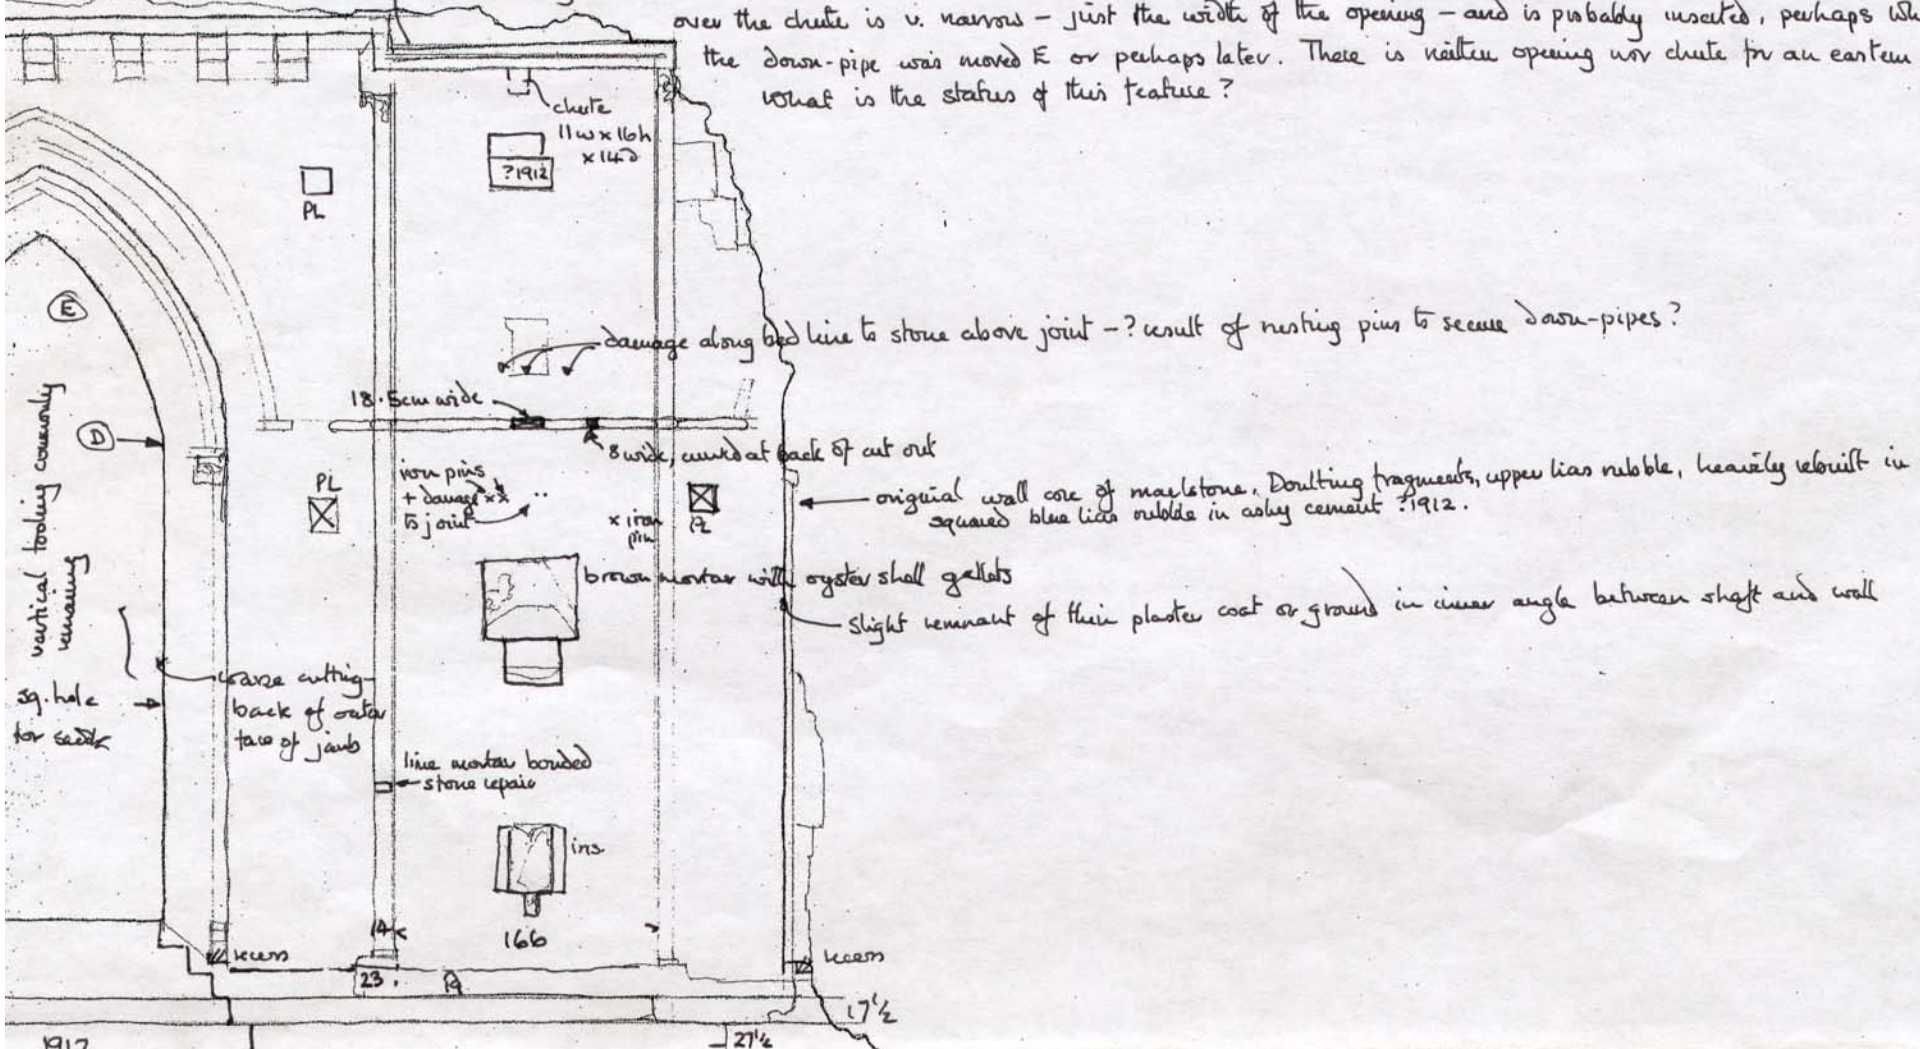 over the chute is v. narrow – just the width of the opening – and is probably inserted, perhaps
the down-pipe was moved E or perhaps later. There is neither opening nor chute for an eastern
what is the status of this feature?
chute
11w x 16h
x 14d
?1912
PL
E
damage along bed line to stone above joint – ? result of nesting pins to secure down-pipes?
18.5cm wide
D
8 wide, curved at back of cut out
vertical tooling commonly
remaining
PL
iron pins
+ damage xx
to joint
x iron
pin
PL
original wall core of marlstone, Doulting fragments, upper lias rubble, heavily rebuilt in
squared blue lias rubble in ashy cement ?1912.
brown mortar with oyster shell gallets
slight remnant of thin plaster coat or ground in inner angle between shaft and wall
coarse cutting
back of outer
face of jamb
sq. hole
for
lime mortar bonded
stone repair
ins
14
166
recess
recess
23
17½
27½
1912